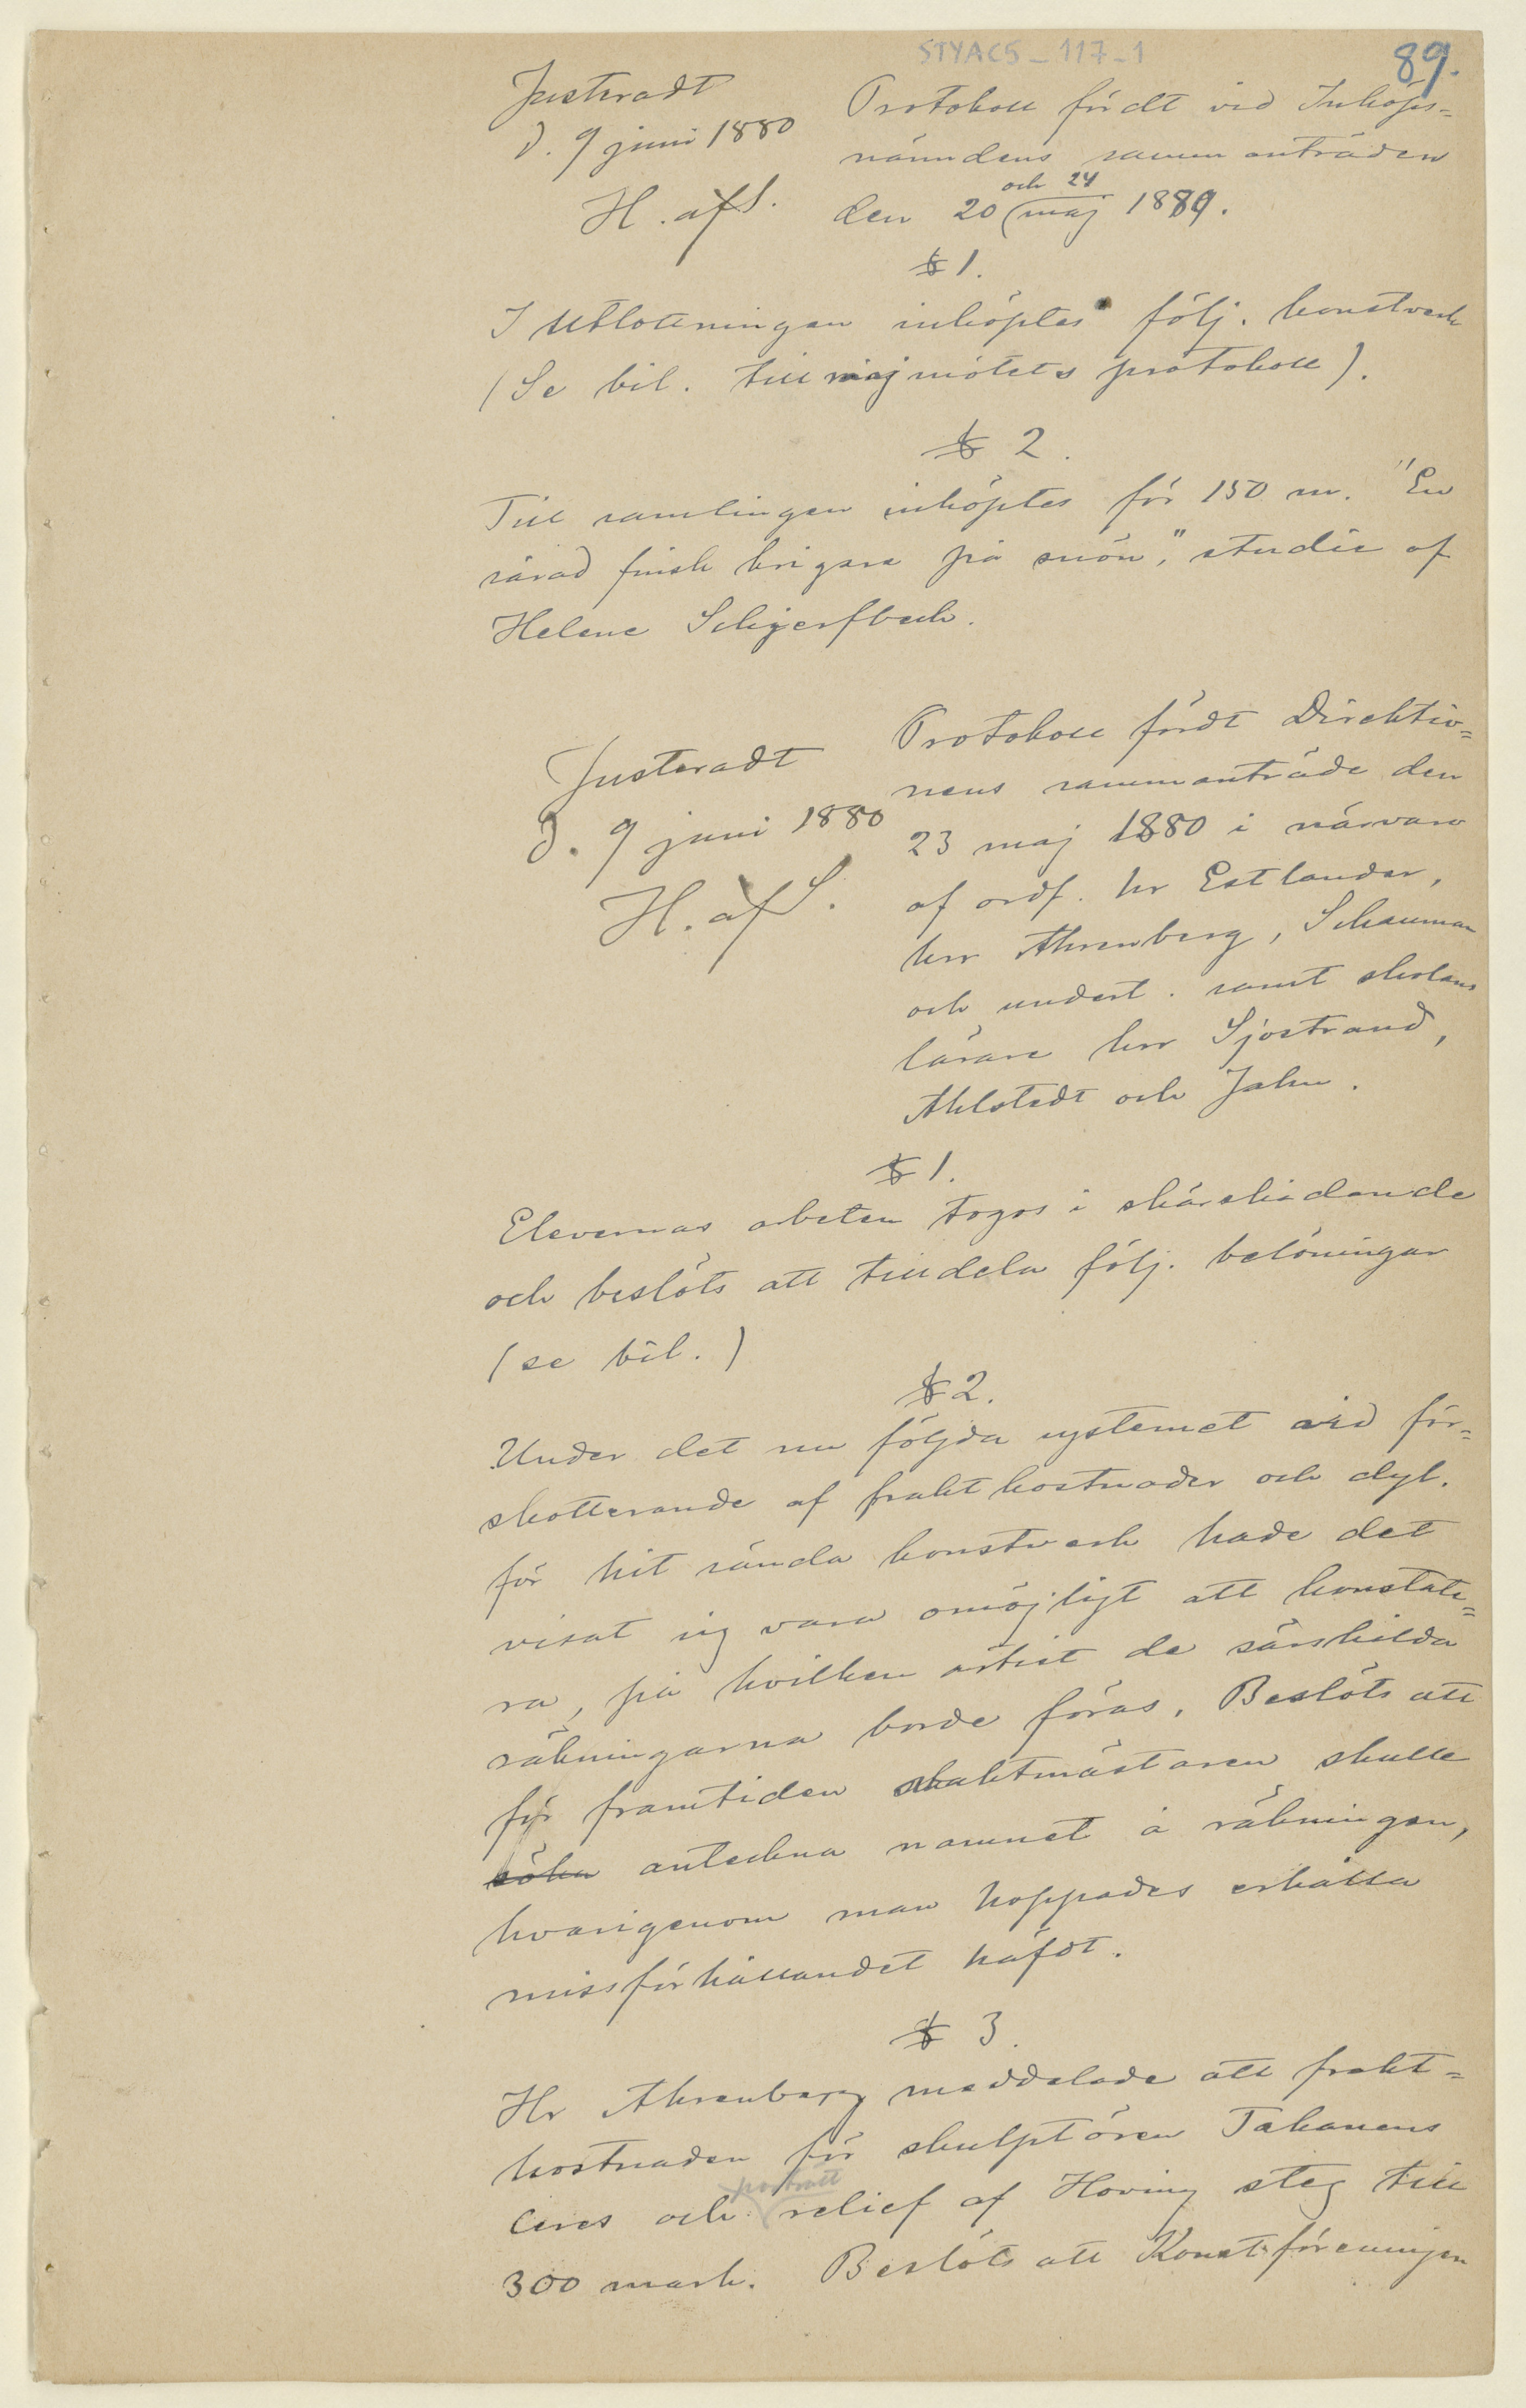 STYAC5_117-1
89.
Justeradt
d. 9 juni 1880
H. af S.
Protokoll fördt vid Inköps=
nämndens sammanträden
och 24
den 20 maj 1880.
§ 1.
I Utlottningen inköptes följ. konstverk
(Se bil. till majmötets protokoll).
§ 2.
Till samlingen inköptes för 150 m. "En
sårad finsk krigare på snön," studie af
Helene Schjerfbeck.
Justeradt
d. 9 juni 1880
H. af S.
Protokoll fördt Direktio=
nens sammanträde den
23 maj 1880 i närvaro
af ordf. hr Estlander,
hrr Ahrenberg, Schauman
och undert. samt skolans
lärare hrr Sjöstrand,
Ahlstedt och Jahn.
§ 1.
Elevernas arbeten togos i skärskådande
och beslöts att tilldela följ. belöningar
(se bil.)
§ 2.
Under det nu följda systemet vid för=
skotterande af fraktkostnader och dyl.
för hit sända konstverk hade det
visat sig vara omöjligt att konstate=
ra, på hvilken artist de särskilda
räkningarna borde föras. Beslöts att
för framtiden vaktmästaren skulle
söka anteckna namnet å räkningen,
hvarigenom man hoppades erhålla
missförhållandet häfdt.
§ 3.
Hr Ahrenberg meddelade att frakt=
kostnaden för skulptören Takanens
porträtt
Ceres och relief af Hoving steg till
300 mark. Beslöts att Konstföreningen